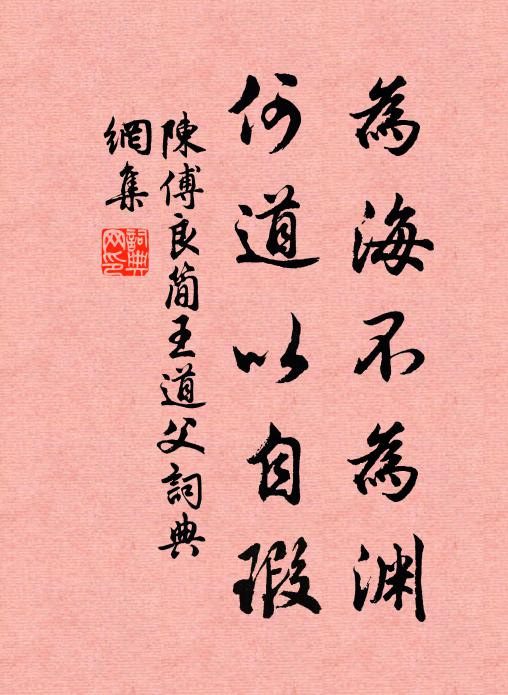 為海不為淵
何道以自瑕
陳傅良簡王道父詞典
網集
詞典
网印